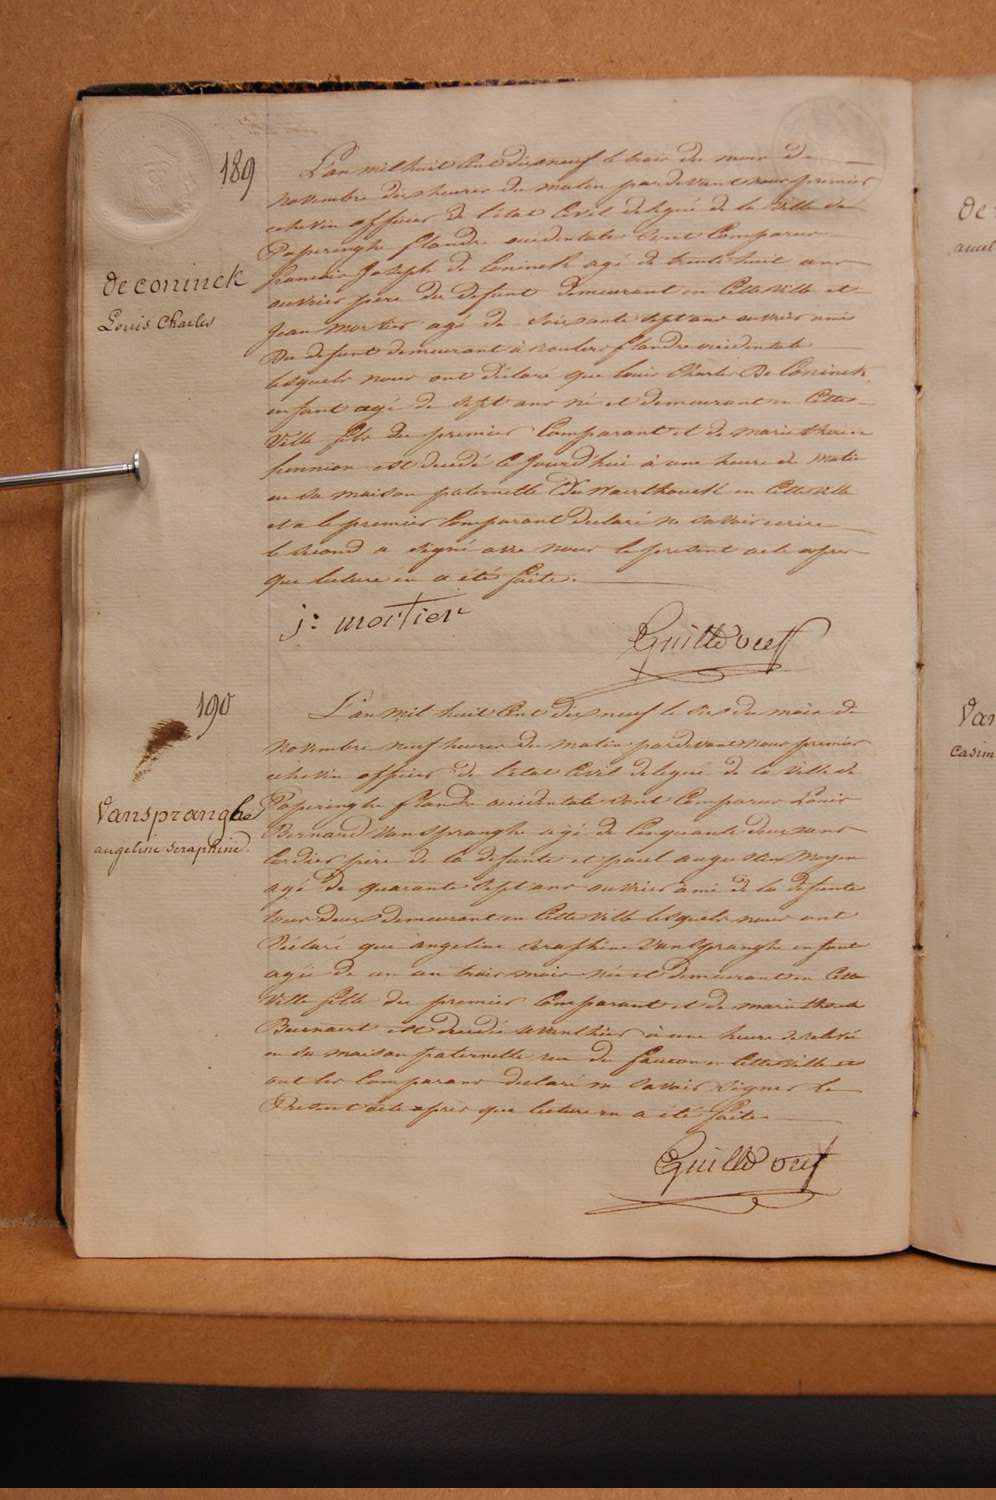 189
L'an mil huit Cent dix neuf le trois du mois de
novembre dix heures du matin pardevant nous premier
echevin officier de l'etat Civil delegué de la Ville de
Poperinghe flandre occidentale sont Comparus
francois Joseph de Coninck agé de trente huit ans
deconinck
Louis Charles
ouvrier père du defunt demeurant en Cette Ville et
Jean Mortier agé de soixante sept ans ouvrier ami
du defunt demeurant à roulers flandre occidentale
lesquels nous ont déclaré que louis Charles De Coninck
enfant agé de sept ans né et demeurant en Cette
Ville fils du premier Comparant et de marie therese
est decedé Ce Jourd'hui à une heure du matin
en sa maison paternelle en Cette Ville
et a le premier Comparant Declaré ne savoir ecrire
le second a signé avec nous le present acte apres
que lecture en a été faite.
j: mortier
190
L'an mil huit Cent dix neuf le six du mois de
novembre neuf heures du matin pardevant nous premier
echevin officier de l'etat Civil delegué de la Ville de
Poperinghe flandre occidentale sont Comparus Louis
Vanspranghe
angeline seraphine.
Bernard Vanspranghe agé de Cinquante deux ans
Cordier père de la defunte et paul augustin Moyen
agé de quarante sept ans ouvrier ami de la defunte
tous deux demeurant en Cette Ville lesquels nous ont
Déclaré que angeline seraphine Vanspranghe enfant
agée de un an trois mois née et demeurant en Cette
Ville fille du premier Comparant et de marie
Beernaert est decedée avanthier à une heure de relevé
en sa maison paternelle rue du faucon en Cette Ville et
ont les Comparans declaré ne savoir signer le
Present acte apres que lecture en a été faite.
De
Van
casim